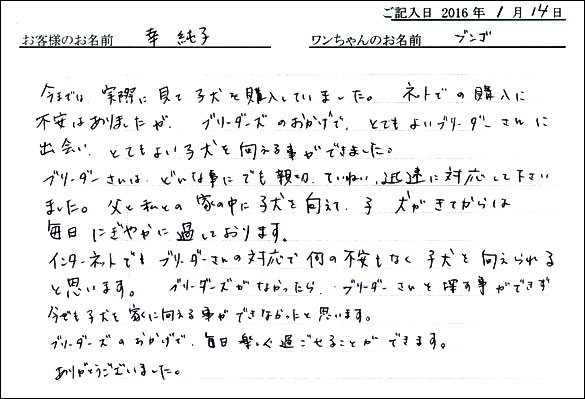 ご記入日 2016年 1月 14日
お客様のお名前 幸 純子 ワンちゃんのお名前 ブンゴ
今までは、実際に見て子犬を購入していました。 ネットでの購入に
不安はありましたが、ブリーダーズのおかげで、とてもよいブリーダーさんに
出会い、とてもよい子犬を向える事ができました。
ブリーダーさんは、どんな事にでも親切、ていねい、迅速に対応して下さい
ました。父と私との家の中に子犬を向えて、子犬がきてからは
毎日にぎやかに過しております。
インターネットでもブリーダーさんの対応で何の不安もなく子犬を向えられる
と思います。 ブリーダーズがなかったら、ブリーダーさんを探す事ができず
今でも子犬を家に向える事ができなかったと思います。
ブリーダーズのおかげで、毎日楽しく過ごせることができます。
ありがとうございました。